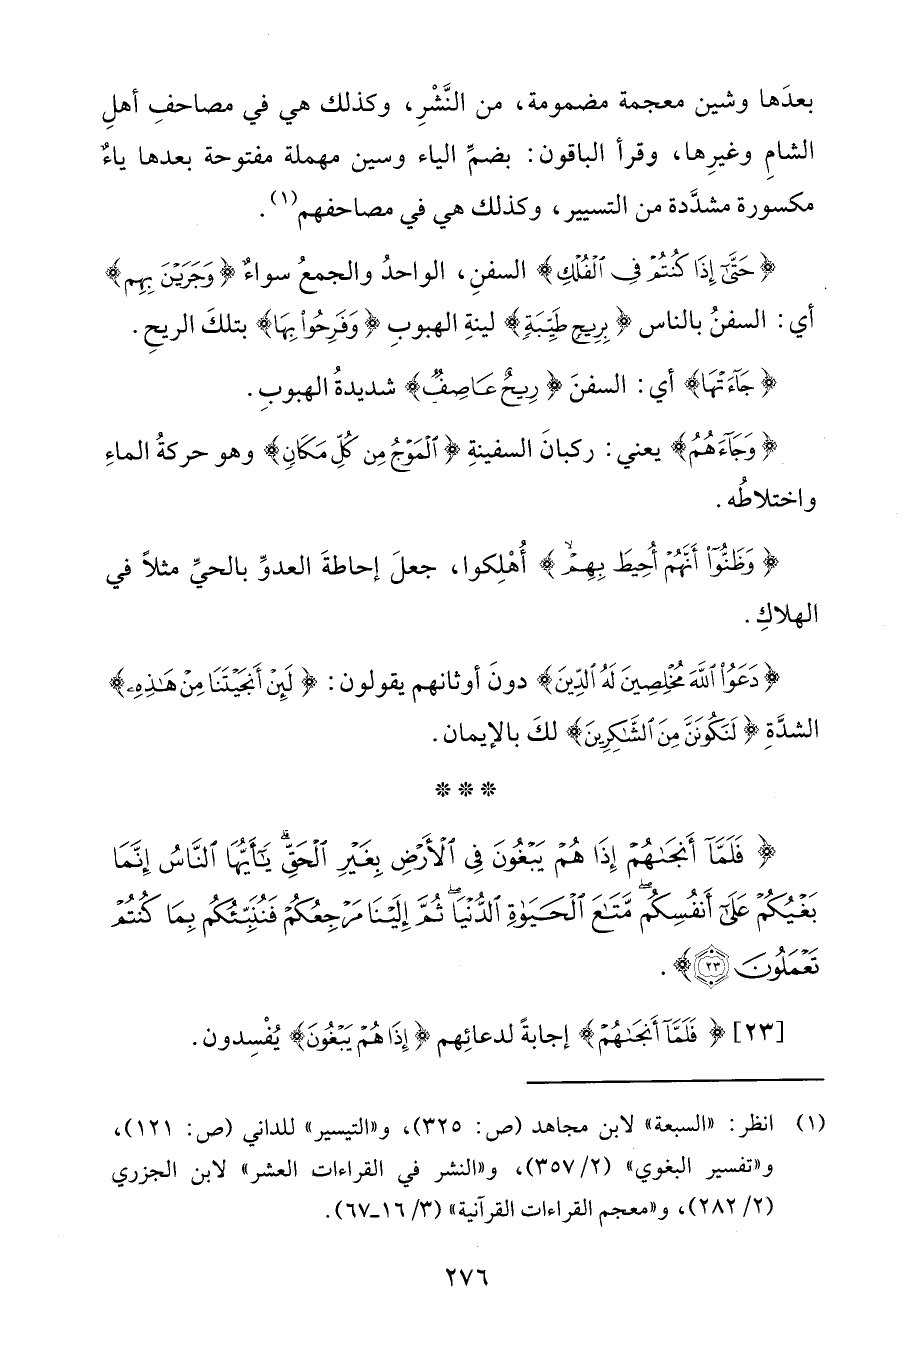 بعدَها وشين معجمة مضمومة، من النَّشْرِ، وكذلك هي في مصاحفِ أهلِ
الشامِ وغيرِها، وقرأ الباقون: بضمِّ الياء وسين مهملة مفتوحة بعدها ياءٌ
مكسورة مشدَّدة من التسيير، وكذلك هي في مصاحفهم(١).
﴿حَتَّىٰٓ إِذَا كُنتُمۡ فِي ٱلۡفُلۡكِ﴾ السفنِ، الواحدُ والجمعُ سواءٌ ﴿وَجَرَيۡنَ بِهِم﴾
أي: السفنُ بالناس ﴿بِرِيحٖ طَيِّبَةٖ﴾ لينةِ الهبوبِ ﴿وَفَرِحُواْ بِهَا﴾ بتلكَ الريحِ.
﴿جَآءَتۡهَا﴾ أي: السفنَ ﴿رِيحٌ عَاصِفٞ﴾ شديدةُ الهبوبِ.
﴿وَجَآءَهُمُ﴾ يعني: ركبانَ السفينةِ ﴿ٱلۡمَوۡجُ مِن كُلِّ مَكَانٖ﴾ وهو حركةُ الماءِ
واختلاطُه.
﴿وَظَنُّوٓاْ أَنَّهُمۡ أُحِيطَ بِهِمۡۙ﴾ أُهْلِكوا، جعلَ إحاطةَ العدوِّ بالحيِّ مثلاً في
الهلاكِ.
﴿دَعَوُاْ ٱللَّهَ مُخۡلِصِينَ لَهُ ٱلدِّينَ﴾ دونَ أوثانهم يقولون: ﴿لَئِنۡ أَنجَيۡتَنَا مِنۡ هَٰذِهِۦ﴾
الشدَّةِ ﴿لَنَكُونَنَّ مِنَ ٱلشَّٰكِرِينَ﴾ لكَ بالإيمان.
* * *
﴿فَلَمَّآ أَنجَىٰهُمۡ إِذَا هُمۡ يَبۡغُونَ فِي ٱلۡأَرۡضِ بِغَيۡرِ ٱلۡحَقِّۗ يَٰٓأَيُّهَا ٱلنَّاسُ إِنَّمَا
بَغۡيُكُمۡ عَلَىٰٓ أَنفُسِكُمۖ مَّتَٰعَ ٱلۡحَيَوٰةِ ٱلدُّنۡيَاۖ ثُمَّ إِلَيۡنَا مَرۡجِعُكُمۡ فَنُنَبِّئُكُم بِمَا كُنتُمۡ
تَعۡمَلُونَ ٢٣﴾.
[٢٣] ﴿فَلَمَّآ أَنجَىٰهُمۡ﴾ إجابةً لدعائِهم ﴿إِذَا هُمۡ يَبۡغُونَ﴾ يُفْسِدون.
(١) انظر: «السبعة» لابن مجاهد (ص: ٣٢٥)، و«التيسير» للداني (ص: ١٢١)،
و«تفسير البغوي» (٢/ ٣٥٧)، و«النشر في القراءات العشر» لابن الجزري
(٢/ ٢٨٢)، و«معجم القراءات القرآنية» (٣/ ١٦-٦٧).
٢٧٦